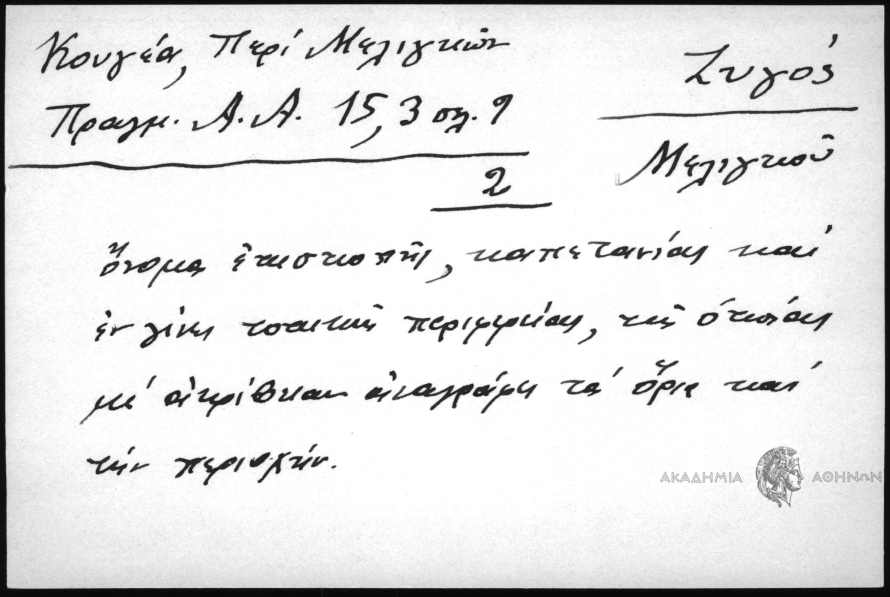 Κουγέα, Περί Μελιγκῶν
Πραγμ. Α.Α. 15,3 σελ. 9
2
Ζυγός
Μελιγκοῦ
ὄνομα ἐπισκοπῆς, καπετανίας καί
ἐν γένει τοπικῆς περιφερείας, τῆς ὁποίας
μέ ἀκρίβειαν ἀναγράφει τά ὅρια καί
τήν περιοχήν.
ΑΚΑΔΗΜΙΑ ΑΘΗΝΩΝ